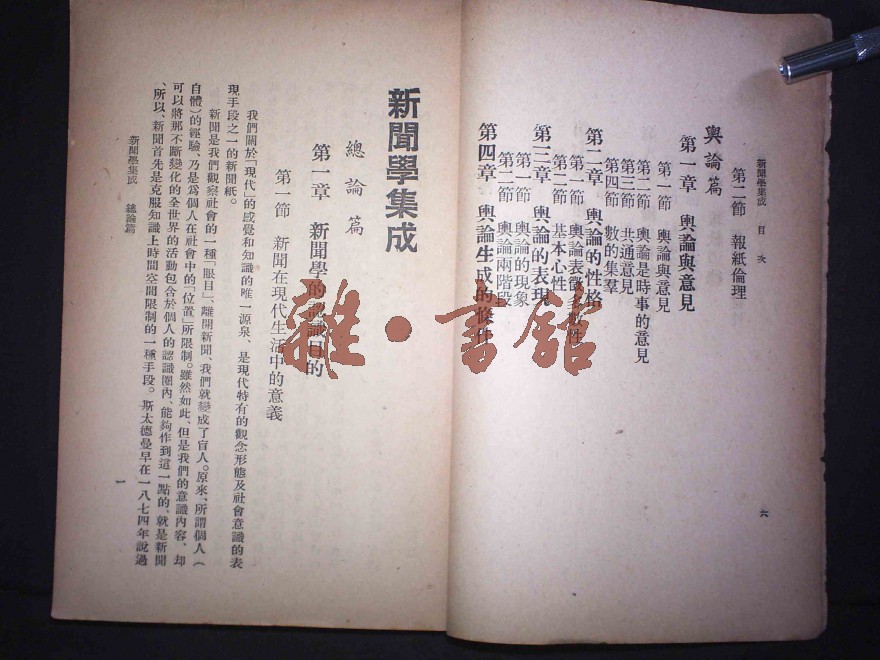 新聞學集成 目次
第二節 報紙倫理
輿論篇
第一章 輿論與意見
第一節 輿論與意見
第二節 輿論是時事的意見
第三節 共通意見
第四節 數的集羣
第二章 輿論的性格
第一節 輿論表徵多數性
第二節 基本心性
第三章 輿論的表現
第一節 輿論的現象
第二節 輿論兩階段
第四章 輿論生成的條件
六
新聞學集成
總論篇
第一章 新聞學的認識目的
第一節 新聞在現代生活中的意義
我們關於「現代」的感覺和知識的唯一源泉、是現代特有的觀念形態及社會意識的表
現手段之一的新聞紙。
新聞是我們觀察社會的一種「眼目」、離開新聞、我們就變成了盲人。原來、所謂個人(
自體)的經驗、乃是爲個人在社會中的「位置」所限制。雖然如此、但是我們的意識內容、却
可以將那不斷變化的全世界的活動包含於個人的認識圈內、能夠作到這一點的、就是新聞
、所以、新聞首先是克服知識上時間空間限制的一種手段。斯太德曼早在一八七四年說過
新聞學集成 總論篇
一
雜·書館